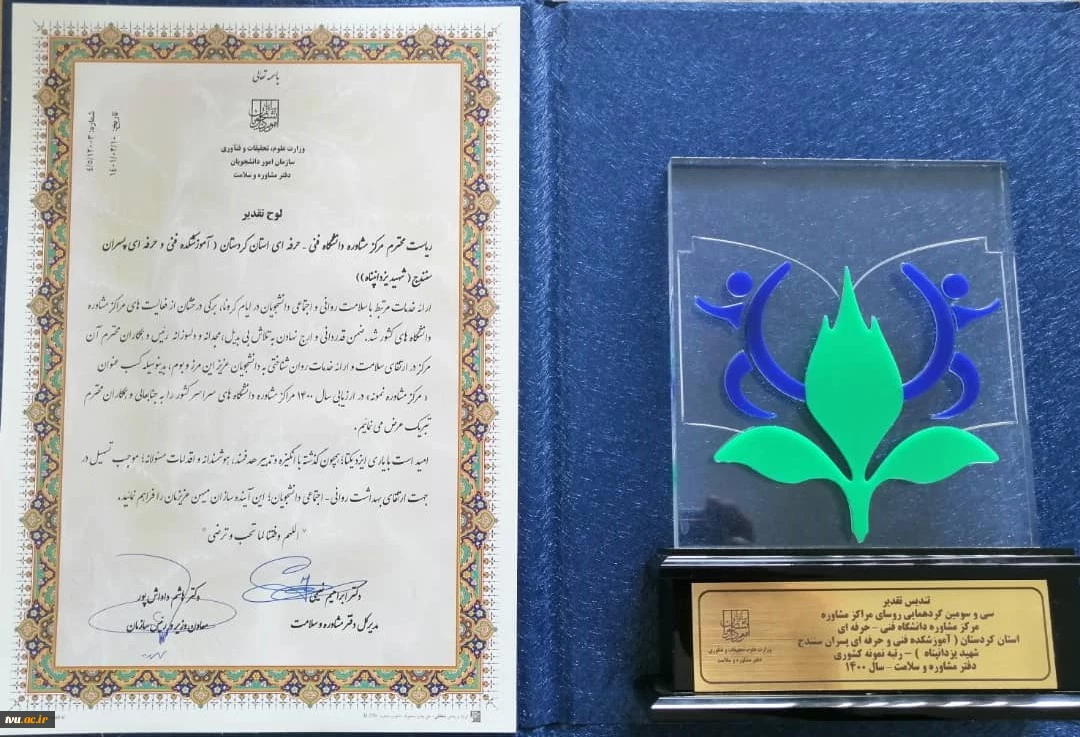 باسمه تعالی
شماره: ۴/۵/۱۲۰۰۳
تاریخ: ۱۴۰۱/۰۳/۱۰
وزارت علوم، تحقیقات و فنآوری
سازمان امور دانشجویان
دفتر مشاوره و سلامت
لوح تقدیر
ریاست محترم مرکز مشاوره دانشگاه فنی - حرفه ای استان کردستان ( آموزشکده فنی و حرفه ای پسران
سنندج ( شهید یزدانپناه ))
ارائه خدمات مرتبط با سلامت روانی و اجتماعی دانشجویان در ایام کرونا، برگی درخشان از فعالیت های مراکز مشاوره
دانشگاه های کشور شد. ضمن قدردانی و ارج نهادن به تلاش بی بدیل، مجدانه و دلسوزانه رئیس و همکاران محترم آن
مرکز در ارتقای سلامت و ارائه خدمات روان شناختی به دانشجویان عزیز این مرز و بوم، بدینوسیله کسب عنوان
« مرکز مشاوره نمونه» در ارزیابی سال ۱۴۰۰ مراکز مشاوره دانشگاه های سراسر کشور را به جنابعالی و همکاران محترم
تبریک عرض می نمائیم.
امید است با یاری ایزد یکتا؛ همچون گذشته با انگیزه و تدبیر هدفمند، هوشمندانه و اقدامات مسئولانه؛ موجب تسهیل در
جهت ارتقای بهداشت روانی - اجتماعی دانشجویان؛ این آینده سازان میهن عزیزمان را فراهم نمائید.
" اللهم وفقنا لما تحب و ترضی "
دکتر ابراهیم
مدیرکل دفتر مشاوره و سلامت
دکتر هاشم داداش پور
معاون وزیر و رئیس سازمان
تندیس تقدیر
سی و سومین گردهمایی روسای مراکز مشاوره
مرکز مشاوره دانشگاه فنی - حرفه ای
استان کردستان ( آموزشکده فنی و حرفه ای پسران سنندج
شهید یزدانپناه ) – رتبه نمونه کشوری
دفتر مشاوره و سلامت - سال ۱۴۰۰
وزارت علوم، تحقیقات و فنآوری
دفتر مشاوره و سلامت
tvu.ac.ir